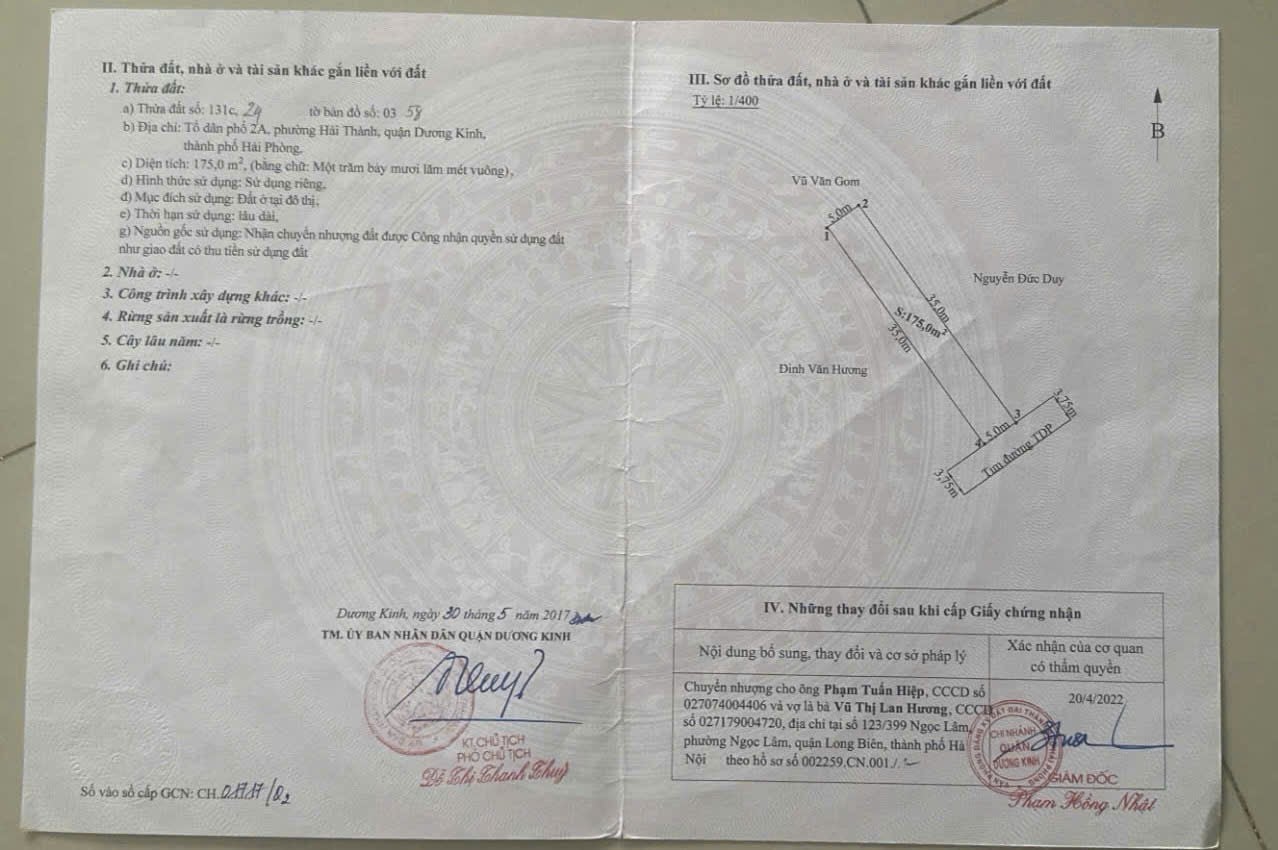 II. Thửa đất, nhà ở và tài sản khác gắn liền với đất
1. Thửa đất:
a) Thửa đất số: 131c, 29 tờ bản đồ số: 03 58
b) Địa chỉ: Tổ dân phố 2A, phường Hải Thành, quận Dương Kinh,
thành phố Hải Phòng,
c) Diện tích: 175,0 m², (bằng chữ: Một trăm bảy mươi lăm mét vuông),
d) Hình thức sử dụng: Sử dụng riêng,
đ) Mục đích sử dụng: Đất ở tại đô thị,
e) Thời hạn sử dụng: lâu dài,
g) Nguồn gốc sử dụng: Nhận chuyển nhượng đất được Công nhận quyền sử dụng đất
như giao đất có thu tiền sử dụng đất
2. Nhà ở: -/-
3. Công trình xây dựng khác: -/-
4. Rừng sản xuất là rừng trồng: -/-
5. Cây lâu năm: -/-
6. Ghi chú:
Dương Kinh, ngày 30 tháng 5 năm 2017
TM. ỦY BAN NHÂN DÂN QUẬN DƯƠNG KINH
KT.CHỦ TỊCH
PHÓ CHỦ TỊCH
Đỗ Thị Thanh Thuỷ
Số vào sổ cấp GCN: CH.
III. Sơ đồ thửa đất, nhà ở và tài sản khác gắn liền với đất
Tỷ lệ: 1/400
B
Vũ Văn Gom
5.0m
2
1
Nguyễn Đức Duy
35,0m
S:175,0m²
35,0m
Đinh Văn Hương
3,75m
3
4
5.0m
Tim đường TDP
3,75m
IV. Những thay đổi sau khi cấp Giấy chứng nhận
Nội dung bổ sung, thay đổi và cơ sở pháp lý
Xác nhận của cơ quan
có thẩm quyền
Chuyển nhượng cho ông Phạm Tuấn Hiệp, CCCD số
027074004406 và vợ là bà Vũ Thị Lan Hương, CCCD
số 027179004720, địa chỉ tại số 123/399 Ngọc Lâm,
phường Ngọc Lâm, quận Long Biên, thành phố Hà
Nội theo hồ sơ số 002259.CN.001./.
20/4/2022
CHI NHÁNH
QUẬN
DƯƠNG KINH
GIÁM ĐỐC
Phạm Hồng Nhật